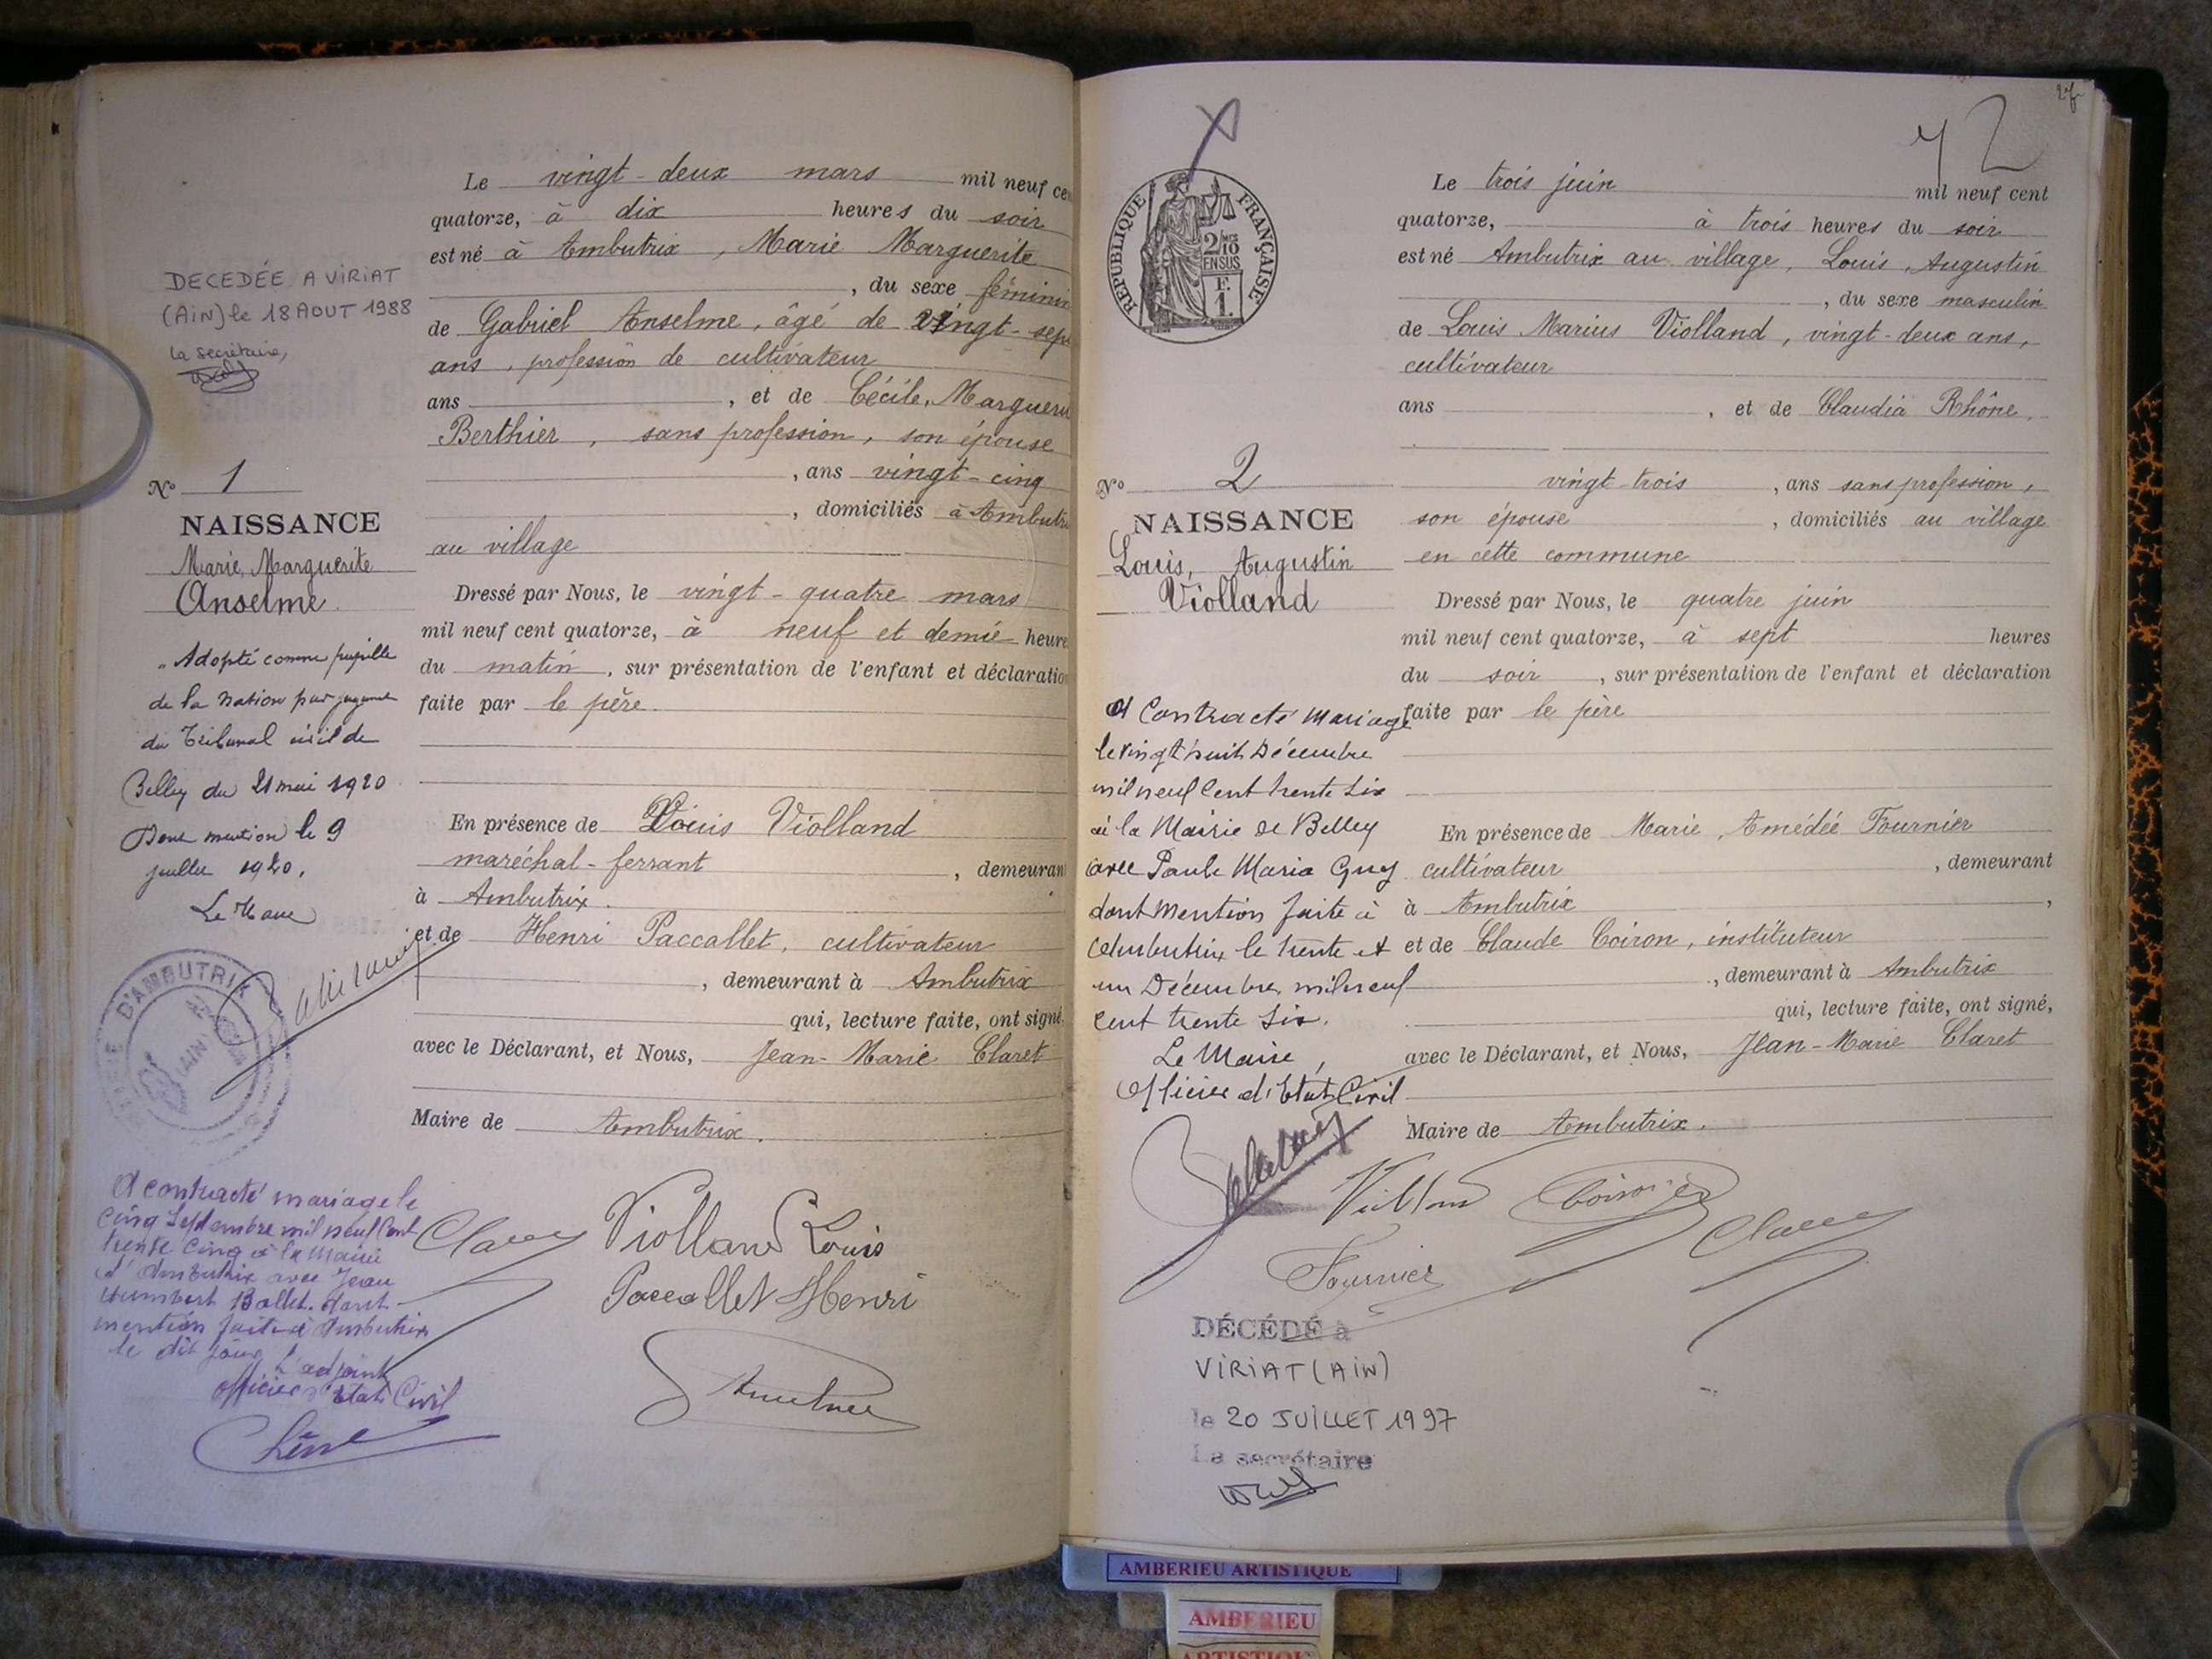 Le vingt-deux mars mil neuf cen
quatorze, à dix heures du soir
est né à Ambutrix, Marie Marguerite
, du sexe féminin
de Gabriel Anselme, âgé de vingt-sept
ans, profession de cultivateur
ans , et de Cécile, Marguerit
Berthier, sans profession, son épouse
, ans vingt-cinq
, domiciliés à Ambutri
au village
Dressé par Nous, le vingt-quatre mars
mil neuf cent quatorze, à neuf et demie heure
du matin, sur présentation de l'enfant et déclaration
faite par le père.
En présence de Louis Violland
maréchal-ferrant , demeurant
à Ambutrix.
et de Henri Paccallet, cultivateur
, demeurant à Ambutrix
qui, lecture faite, ont signé,
avec le Déclarant, et Nous, Jean-Marie Claret
Maire de Ambutrix.
Violland Louis
Paccallet Henri
DECEDÉE A VIRIAT
(AiN) le 18 AOUT 1988
La secrétaire,
N° 1
NAISSANCE
Marie, Marguerite
Anselme
"Adopté comme pupille
de la Nation par jugement
du Tribunal civil de
Belley du 21 mai 1920
Dont mention le 9
juillet 1920.
Le Maire
D'AMBUTRIX
(AIN)
A contracté mariage le
cinq Septembre mil neuf cent
trente cinq à la Mairie
d'Ambutrix avec Jean
Humbert Ballet. dont
mention faite à Ambutrix
le dit jour
L'adjoint
officier d'Etat Civil
2/10
EN SUS
RÉPUBLIQUE FRANÇAISE
Le trois juin mil neuf cent
quatorze, à trois heures du soir
est né Ambutrix au village, Louis, Augustin
, du sexe masculin
de Louis Marius Violland, vingt-deux ans,
cultivateur
ans , et de Claudia Rhône,
vingt-trois , ans sans profession,
son épouse , domiciliés au village
en cette commune
Dressé par Nous, le quatre juin
mil neuf cent quatorze, à sept heures
du soir , sur présentation de l'enfant et déclaration
faite par le père
En présence de Marie, Amédée Fournier
cultivateur , demeurant
à Ambutrix ,
et de Claude Coiron, instituteur
, demeurant à Ambutrix
qui, lecture faite, ont signé,
avec le Déclarant, et Nous, Jean-Marie Claret
Maire de Ambutrix.
Fournier
N° 2
NAISSANCE
Louis, Augustin
Violland
A Contracté Mariage
le vingt huit Décembre
mil neuf Cent trente Six
à la Mairie de Belley
avec Paule Maria Guy
dont Mention faite à
Ambutrix le trente et
un Décembre mil neuf
cent trente Six.
Le Maire,
Officier d'Etat Civil
DÉCÉDÉ à
VIRIAT (AIN)
le 20 JUILLET 1997
La secrétaire
AMBERIEU ARTISTIQUE
AMBERIEU
ARTISTIQUE